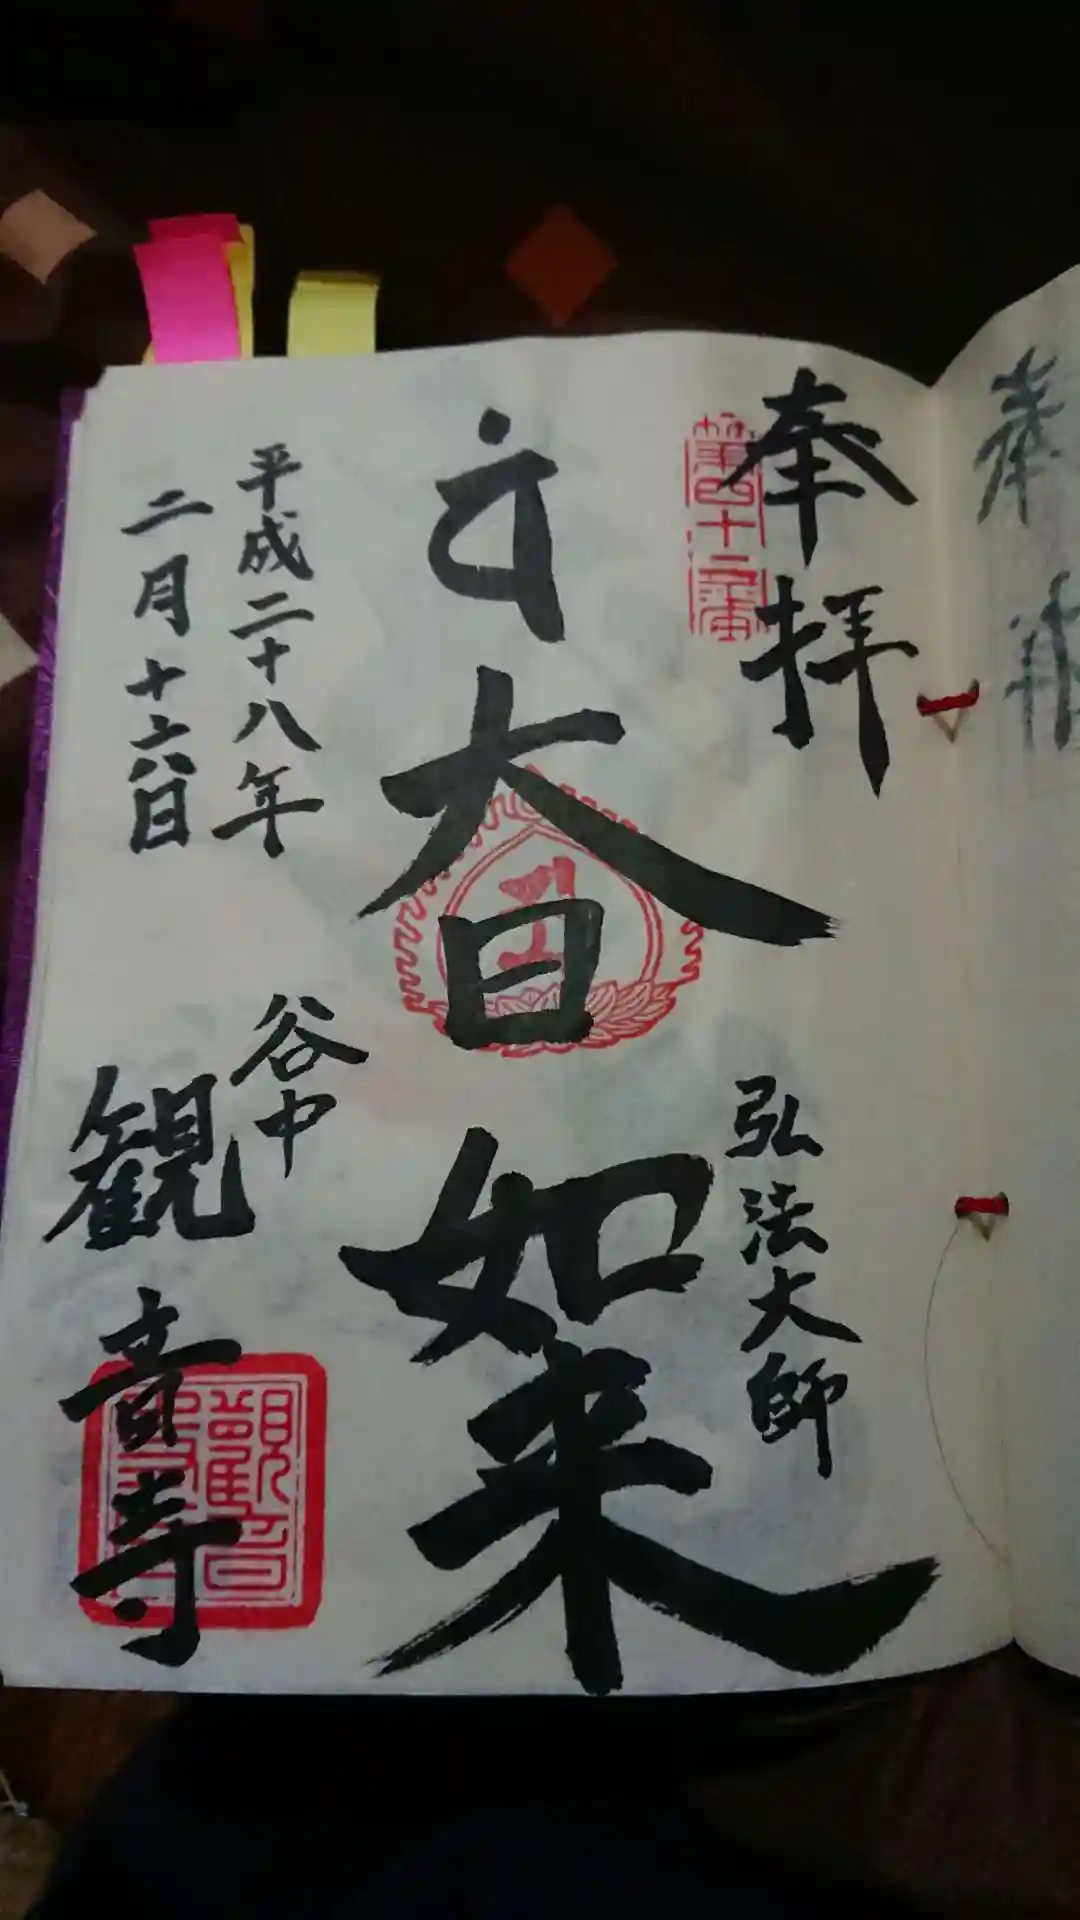 奉拝
第四十二番
弘法大師
大日如来
平成二十八年
二月十六日
谷中
観音寺